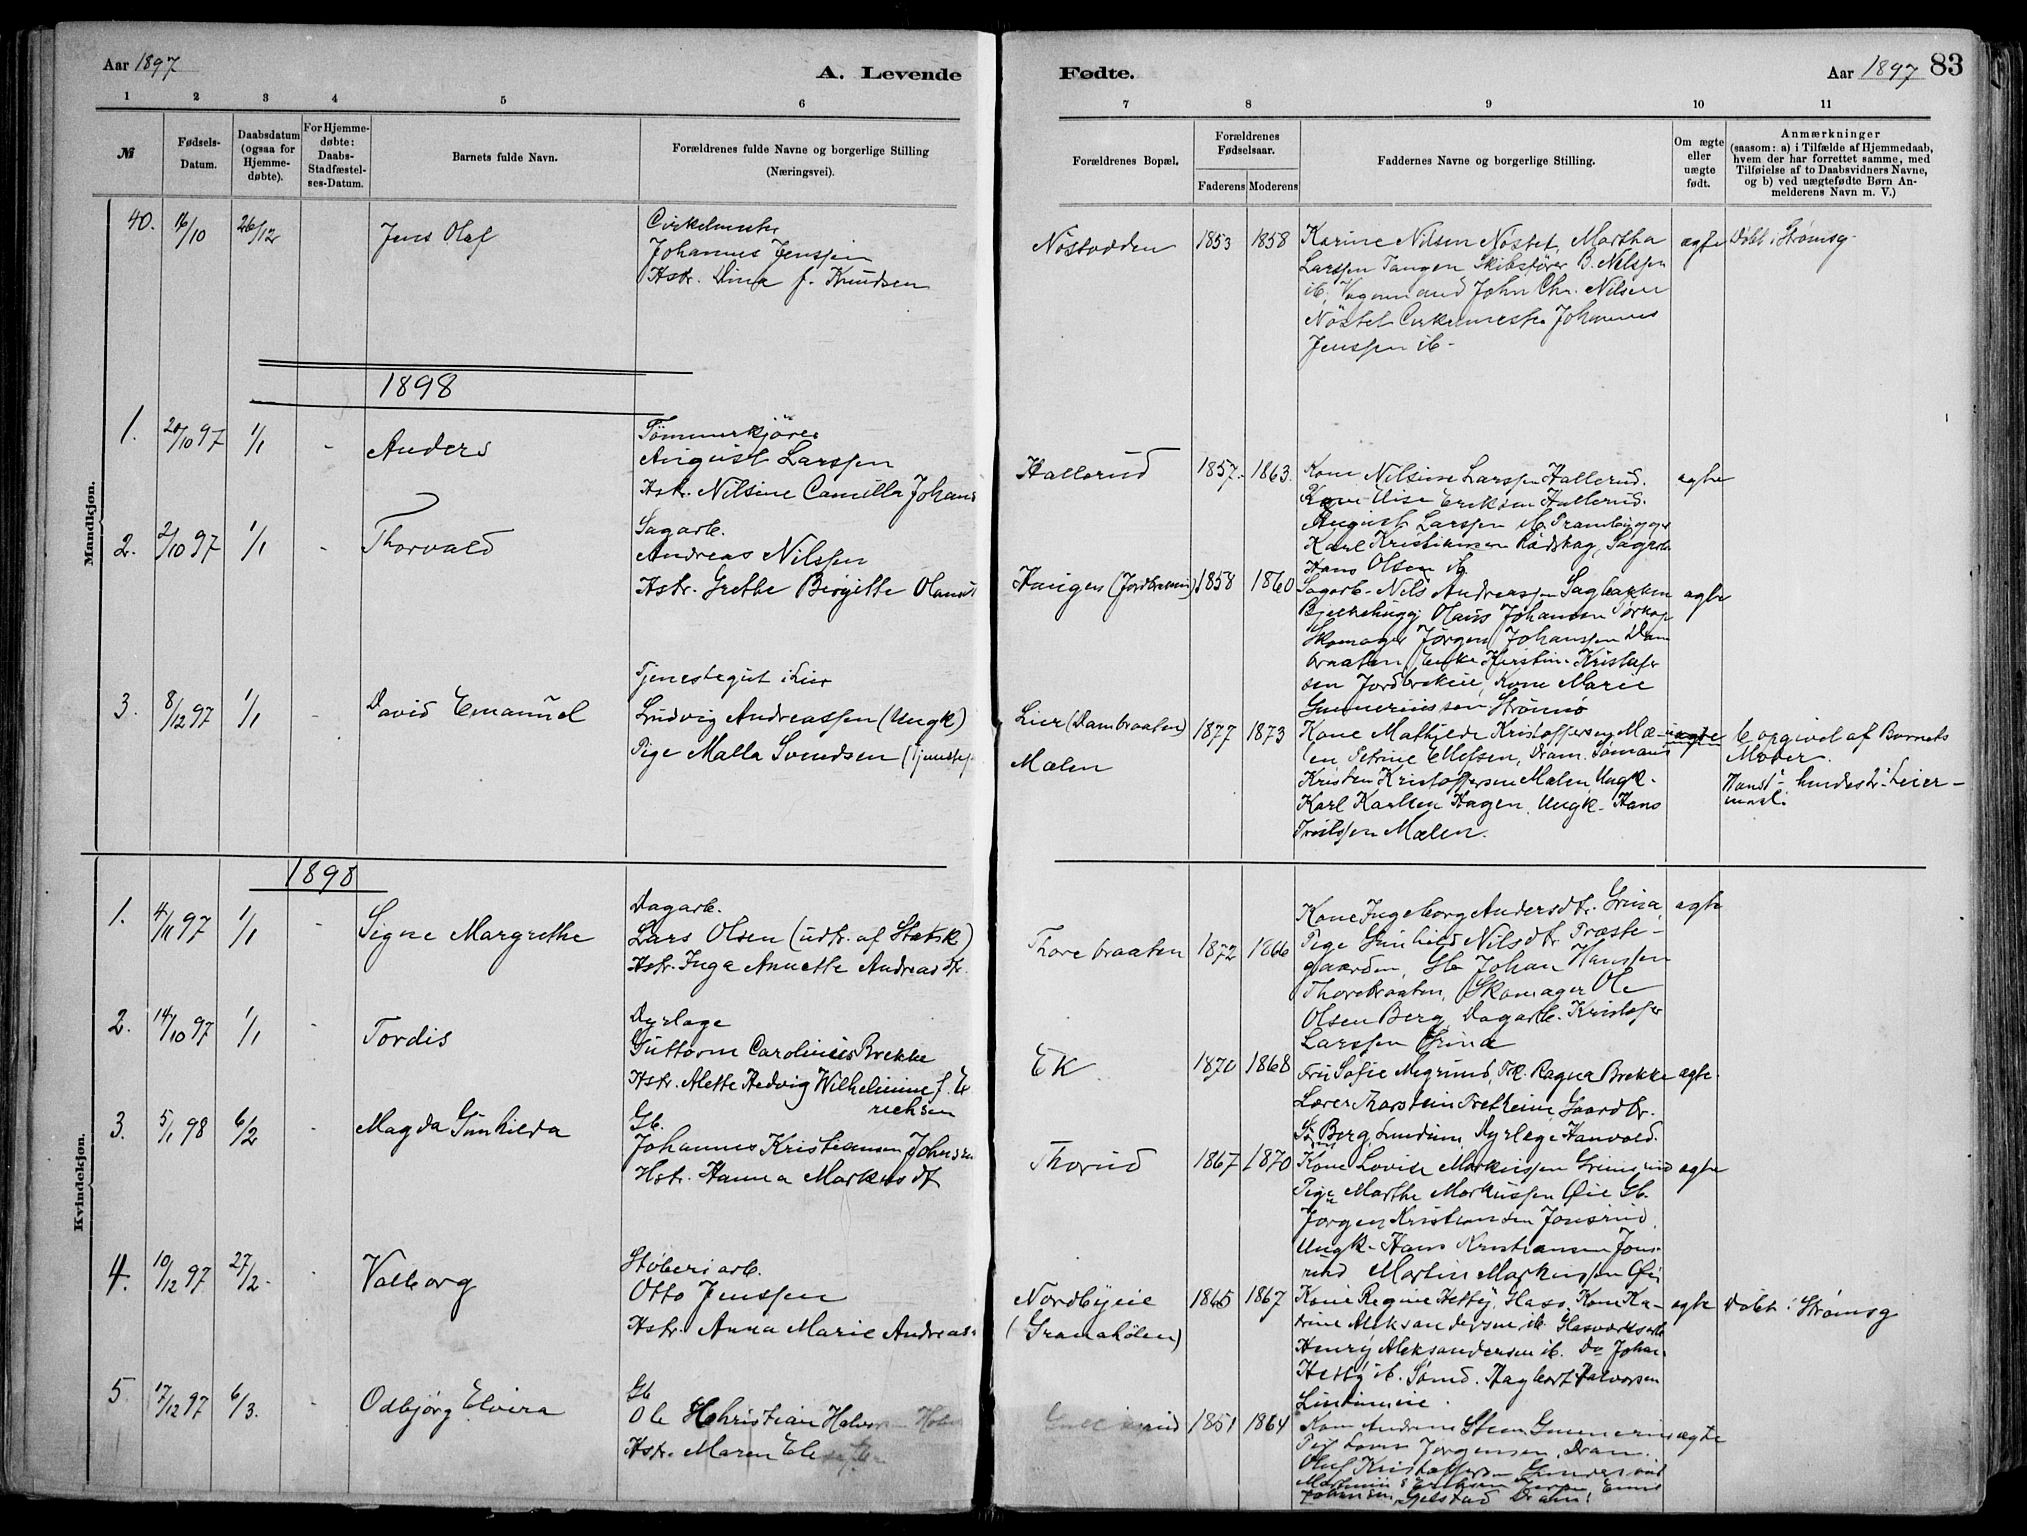 Aar 1897
A. Levende
Fødte.
Aar 1897
83
1 2 3 4 5 6 7 8 9 10 11
№
Fødsels-
Datum.
Daabsdatum
(ogsaa for
Hjemme-
døbte).
For Hjemme-
døbte:
Daabs-
Stadfæstel-
ses-Datum.
Barnets fulde Navn.
Forældrenes fulde Navne og borgerlige Stilling
(Næringsvei).
Forældrenes Bopæl.
Forældrenes
Fødselsaar.
Faderens Moderens
Faddernes Navne og borgerlige Stilling.
Om ægte
eller
uægte
født.
Anmærkninger
(saasom: a) i Tilfælde af Hjemmedaab,
hvem der har forrettet samme, med
Tilføielse af to Daabsvidners Navne,
og b) ved uægtefødte Børn An-
melderens Navn m. V.)
Mandkjøn.
40. 16/10 26/12 Jens Olaf
Johannes Jenssen
Hstr. Dina f. Knudsen
Nøstodden 1853 1858
Karine Nilsen Nøstet, Martha
Larssen Tangen Skibsfører B. Nilssen
ib. Vognmand John Chr. Nilsen
Nøstet Cirkelmester Johannes
Jenssen ib.
ægte Døbt i Strømsg.
1898
1. 20/10 97 1/1 - Anders
Tømmerkjører
August Larssen
Hstr. Nilsine Camilla Johans
Hallerud 1857. 1863.
Kone Nilsine Larssen Hallerud.
Kone Eriksen Hallerud.
August Larssen ib.
Karl Kristiansen Rødskog, Sagarb.
Hans Olsen ib.
ægte
2. 2/10 97 1/1 - Thorvald
Sagarb.
Andreas Nilssen
Hstr. Grethe Birgitte Olausd
Haugen 1858 1860
Sagarb. Nils Andreassen Sagbakken
Olaus Johansen
Skomager Jørgen Johanssen Dam
braaten, Enke Kristofer
sen Kone Marie
Gunneriussen Strømmo
ægte
3. 8/12 97 1/1 - David Emanuel
Tjenestegut i Lier
Ludvig Andreassen (Ungk)
Pige Malla Svendsen
Lier (Dambraaten)
Mælen
1877 1873
Kone Mathilde Kristoffersen Mæ-
len Petrine Ellefsen, Dram. Sømand
Kristen Kristoffersen Mælen Ungk.
Karl Karlsen Hagen, Ungk. Hans
Mælen.
uægte
E opgivet af Barnets
Moder.
hendes 1' Leier-
maal.
Kvindekjøn.
1898
1. 4/11 97 1/1 - Signe Margrethe
Dagarb.
Lars Olsen (udtr. af Statsk)
Hstr. Inga Annette Andreasdtr.
Thorebraaten 1872 1866
Kone Ingeborg Andersdtr. Grina,
Pige Gunhild Nilsdtr. Præste-
gaarden, Gb Johan Hanssen
Thorebraaten, Skomager Ole
Olsen Berg Dagarb. Kristofer
Larssen Grina
ægte
2. 14/10 97 1/1 - Tordis
Dyrlæge
Guttorm Carolinius Brekke
Hstr. Alette Hedvig Wilhelmine f. E
richsen
Ek 1870 1868
Fru Sofie Megrund, Frk. Ragna Brekke
Lærer Thorstein Fretheim Gaardbr.
Berg, Lundum, Dyrlæge Hanvold.
ægte.
3. 5/1 98 6/2 - Magda Gunhilda
Gb.
Johannes Kristiansen Johnsrud
Hstr. Hanna Markusdt
Thorud 1867 1870
Kone Lovise Markussen Grimsrud
Pige Marthe Markussen Øie Gb.
Jørgen Kristiansen Jonsrud
Ungk. Hans Kristiansen Jons-
rud Martin Markussen Øie
ægte
4. 10/12 97 27/2. - Valborg
Støberiarb.
Otto Jenssen
Hstr. Anna Marie Andreas
Nordbyeie
(Granahølen)
1865 1867
Kone Regine Hetby, Glass. Kone Ka-
trine Aleksandersen ib. Glasværksarb
Henry Aleksandersen ib. Do Johan
Hetby ib. Sømd. Dagbert Halvorsen
ægte Døbt i Strømsg
5. 17/12 97 6/3. Odbjørg Elvira
Gb
Ole Kristian
Hstr. Maren
1851 1864
Jørgensen, Dram.
Oluf Kristoffersen
Gjelstad Dram.
ægte